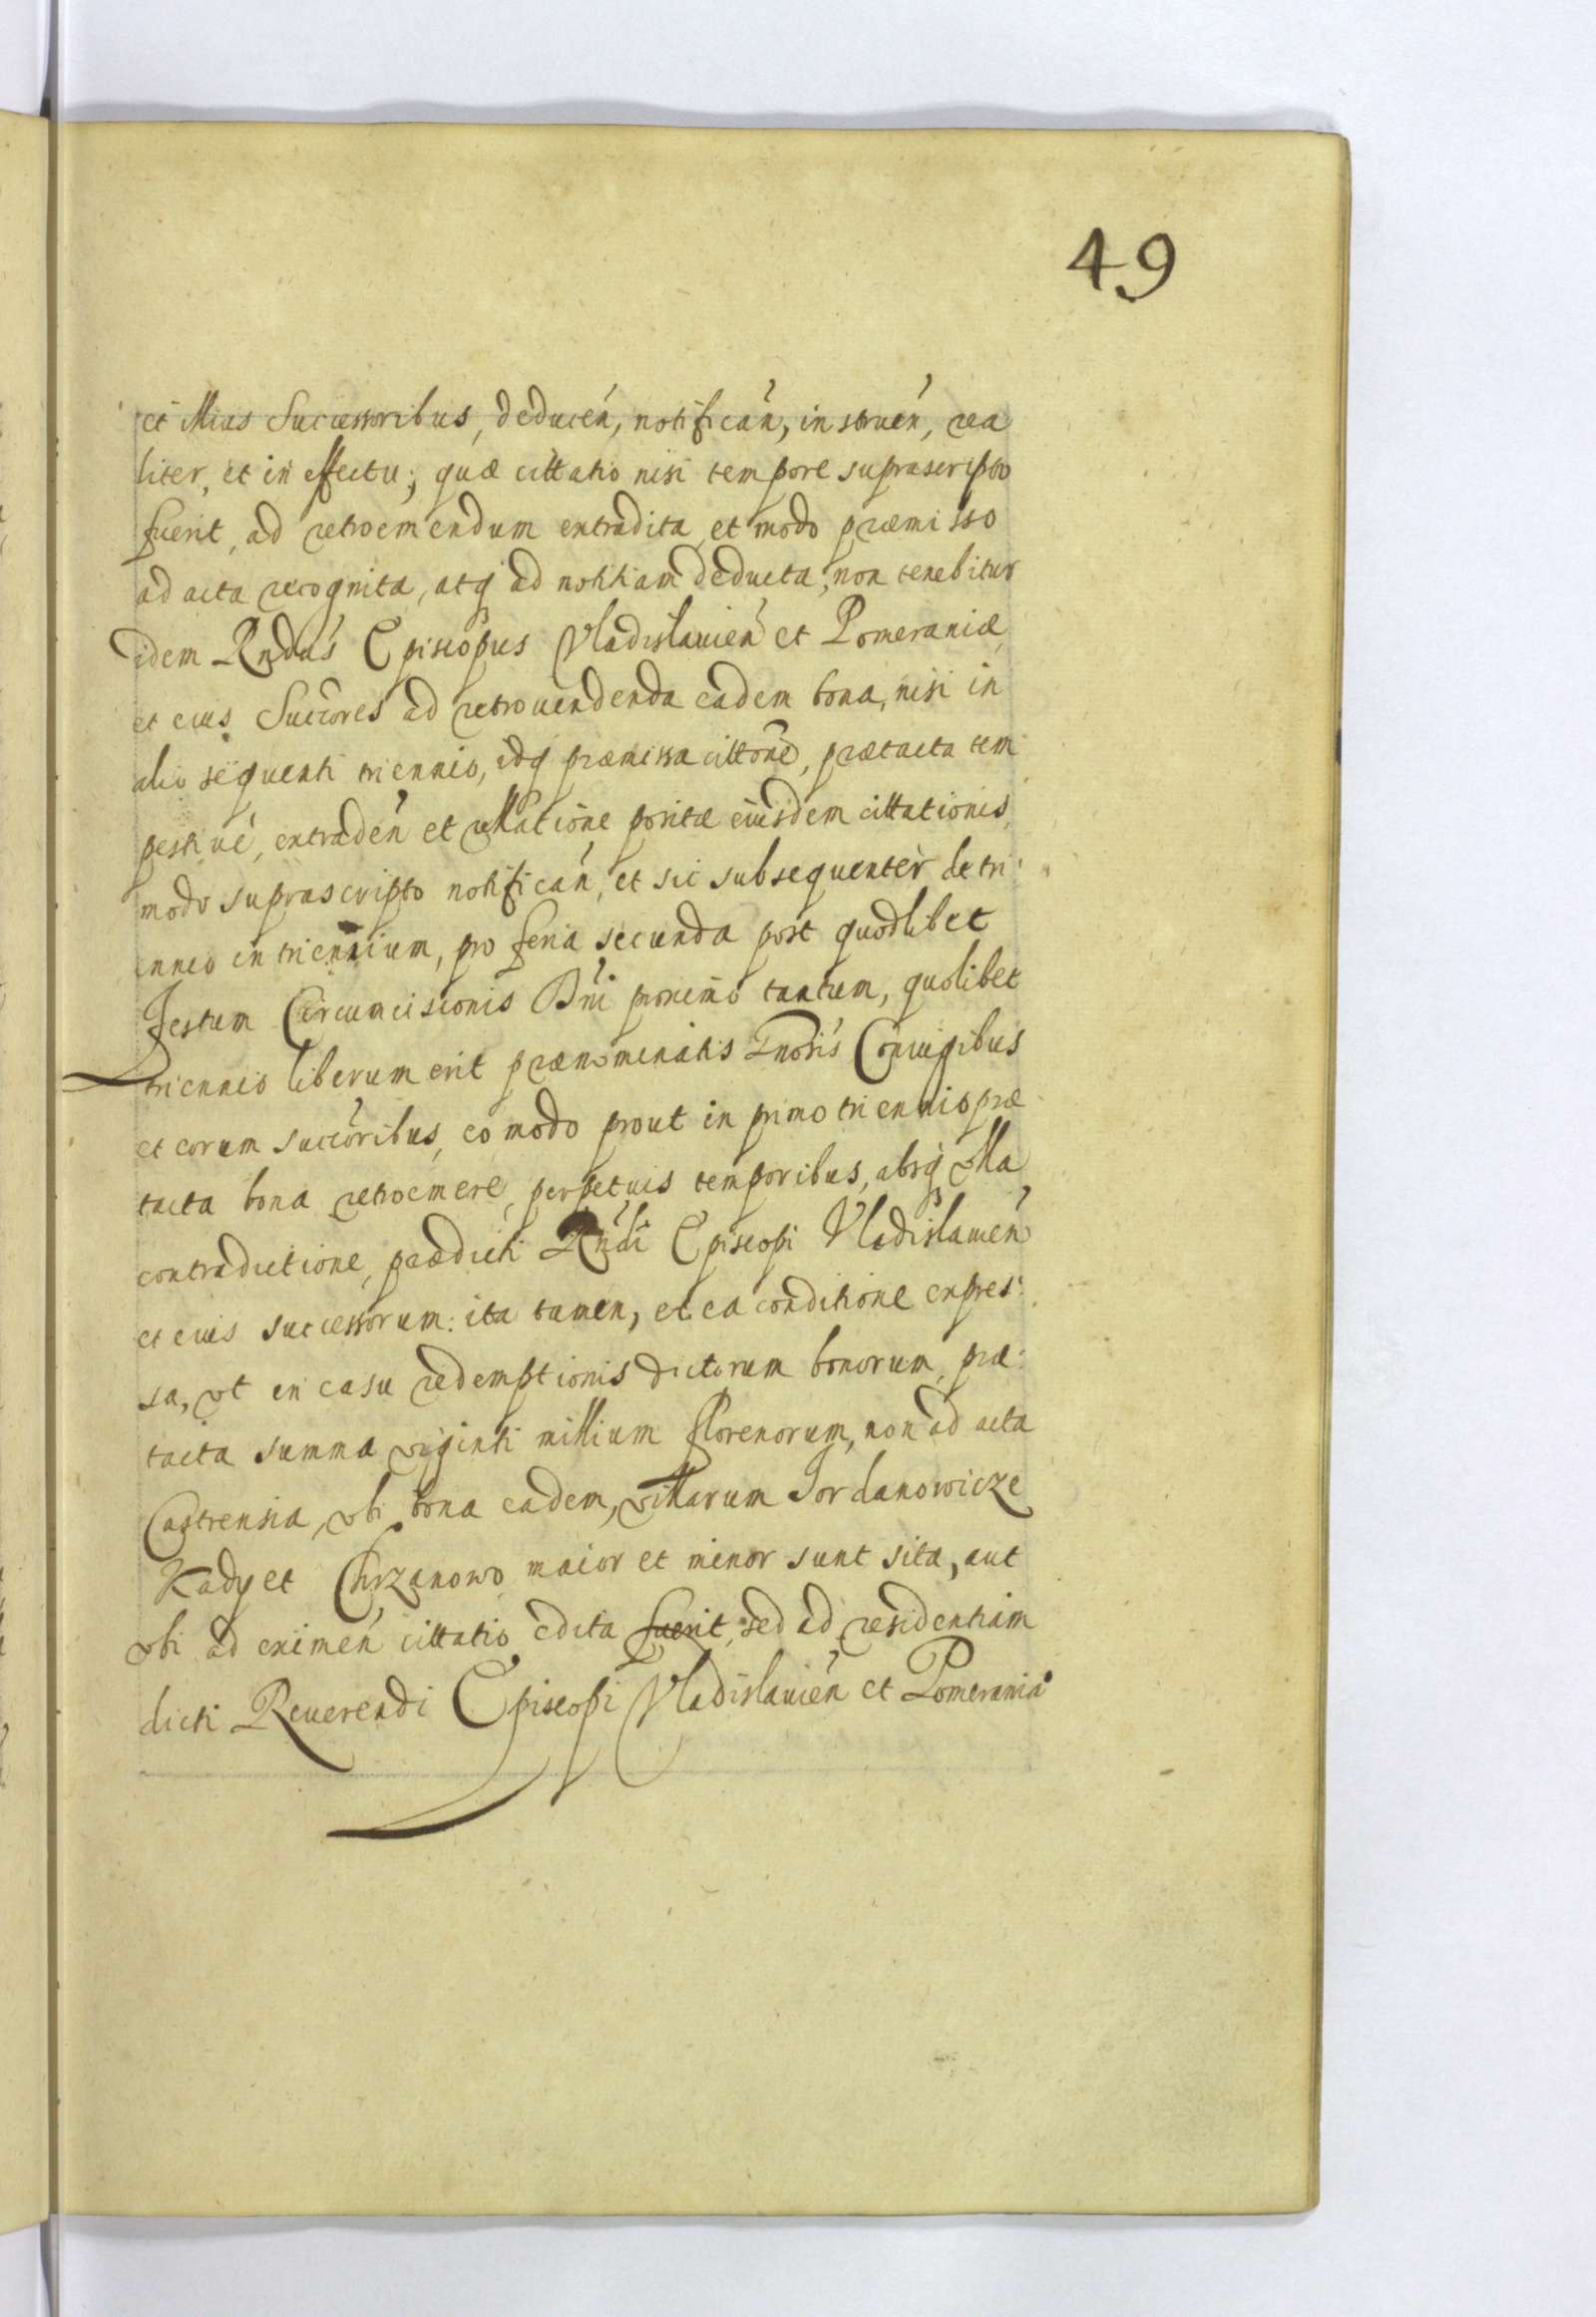 49
et illius Successoribus, deducen̄, notifican̄, instruen̄, rea
liter, et in effectu; quæ cittatio nisi tempore suprascripto
fuerit, ad retroemendum extradita et modo præmisso
ad acta recognita, atq̨ ad notitiam deducta, non tenebitur
idem Rndus Episcopus Vladislauien̄ et Pomeraniæ
et eius Succores ad retrouendenda eadem bona, nisi in
alio sequenti triennio, idq̨ præmissa cittone, prætacta tem
pestiué, extraden̄ et rellatione positæ eiusdem cittationis
modo suprascripto notifican̄, et sic subsequenter de tri
ennio in triennium, pro feria secunda post quodlibet
festum Circumcisionis Dni proximo tantum, quolibet
triennio liberum erit prænominatis Gnosis Coniugibus
et eorum succoribus, eo modo prout in primo triennio præ
tacta bona retroemere, perpetuis temporibus, absq̨ ulla
contradictione, prædicti Rndi Episcopi Vladislauien̄
et eius successorum: ita tamen, et ea conditione expres:
sa, vt in casu redemptionis dictorum bonorum, præ:
tacta summa viginti millium florenorum, non ad acta
Castrensia, vbi bona eadem, villarum Jordanowicze
Kady et Chrzanowo maior et minor sunt sita, aut
vbi ad eximen̄ cittatio edita fuerit, sed ad residentiam
dicti Reuerendi Episcopi Vladislauien̄ et Pomerania